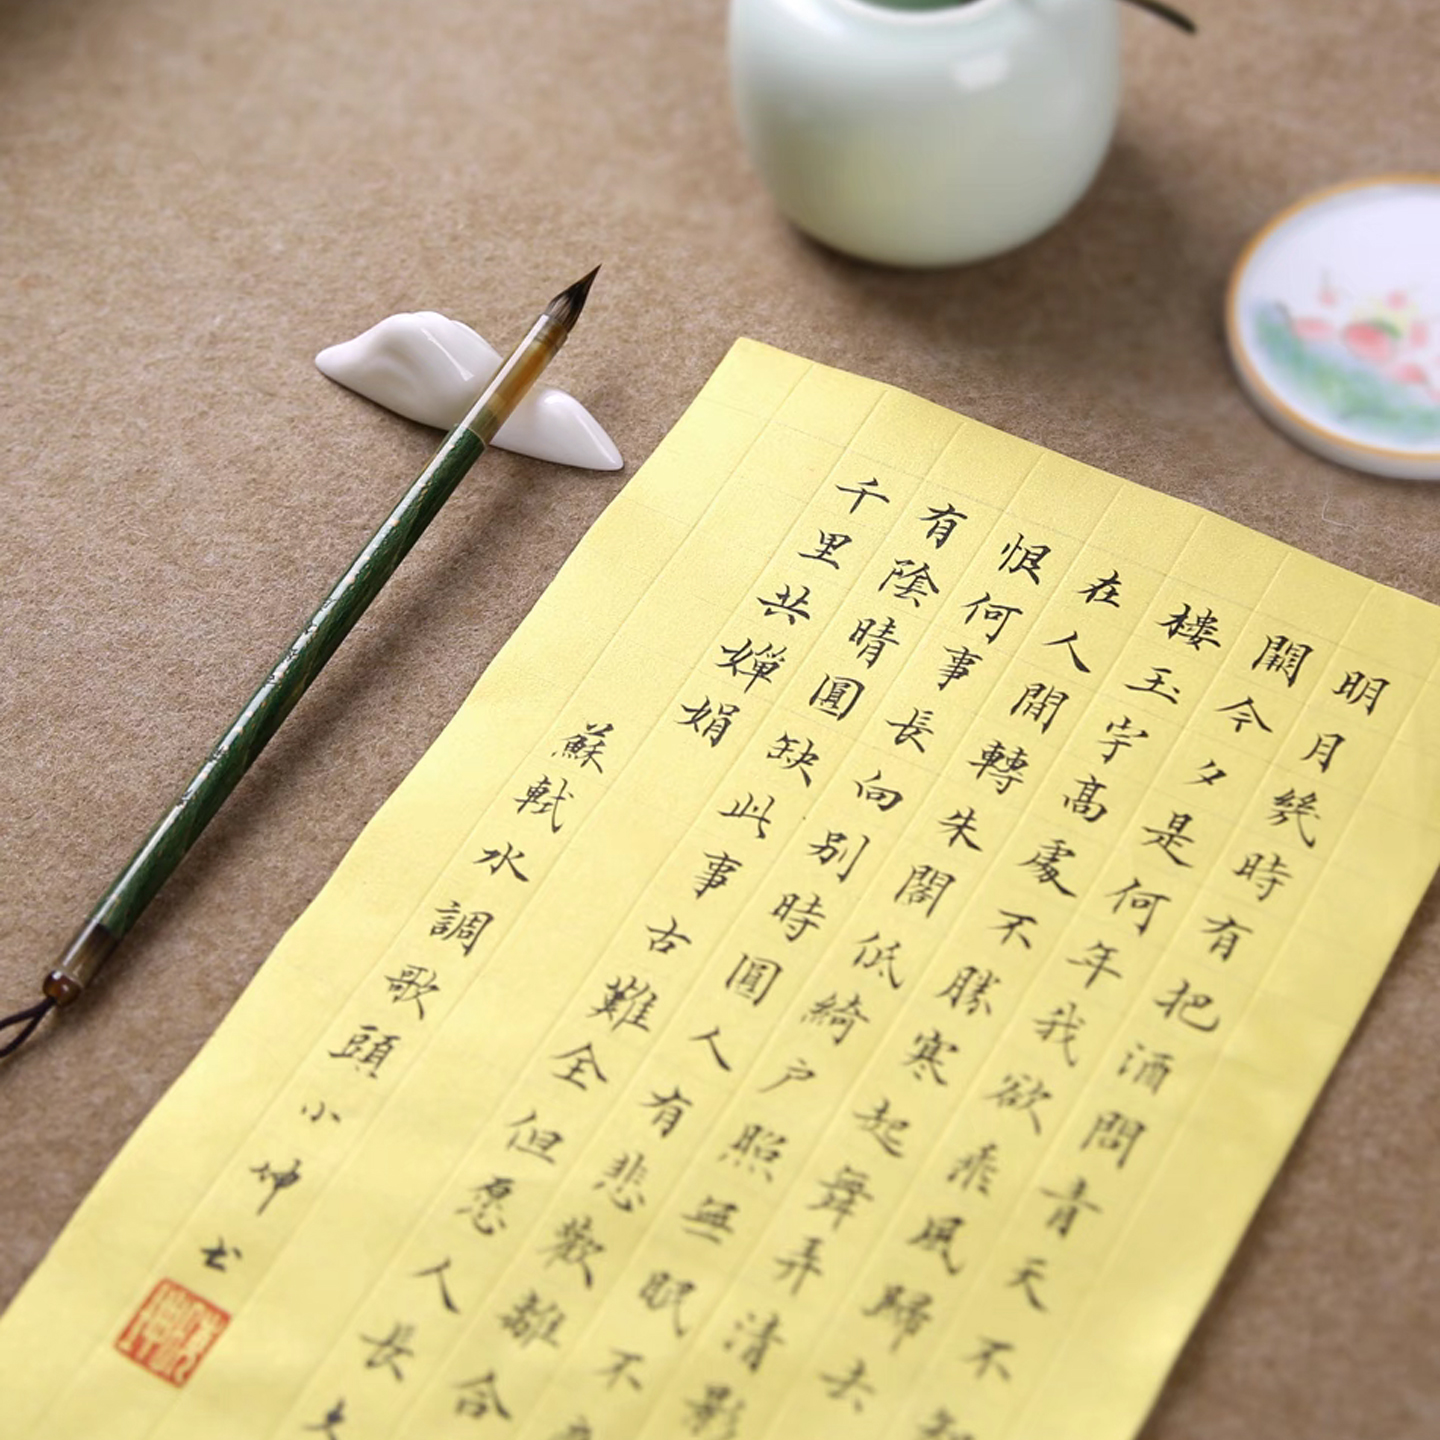 明月幾時有把酒問青天不知
闕今夕是何年我欲乘風歸去
樓玉宇高處不勝寒起舞弄清影
在人間轉朱閣低綺户照無眠不
恨何事長向別時圓人有悲歡離合
有陰晴圓缺此事古難全但愿人長久
千里共嬋娟
蘇軾水調歌頭小坤书